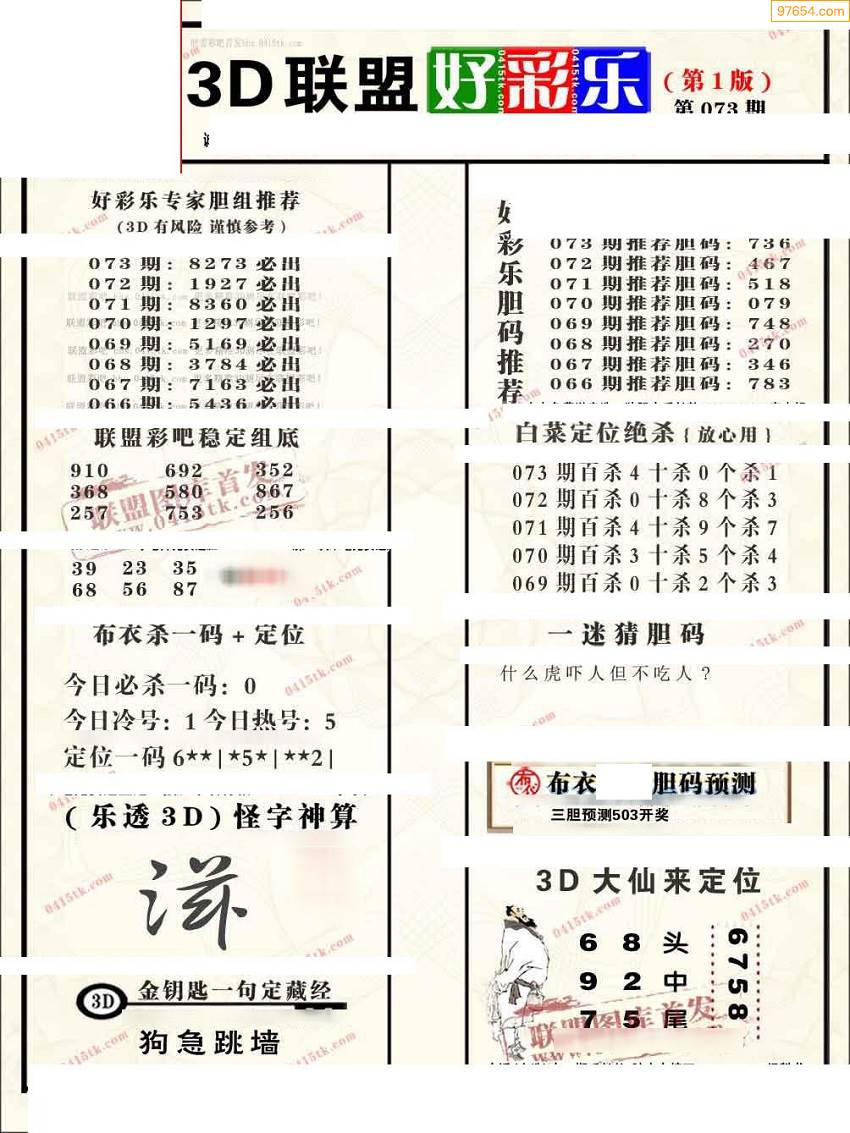 97654.com
3D联盟好彩乐
(第1版)
第073期
好彩乐专家胆组推荐
(3D有风险 谨慎参考)
073期: 8273必出
072期: 1927必出
071期: 8360必出
070期: 1297必出
069期: 5169必出
068期: 3784必出
067期: 7163必出
066期: 5436必出
联盟彩吧稳定组底
910 692 352
368 580 867
257 753 256
39 23 35
68 56 87
布衣杀一码+定位
今日必杀一码: 0
今日冷号: 1 今日热号: 5
定位一码6**|*5*|**2|
(乐透3D)怪字神算
滋
3D 金钥匙一句定藏经
狗急跳墙
好彩乐胆码推荐
073期推荐胆码: 736
072期推荐胆码: 467
071期推荐胆码: 518
070期推荐胆码: 079
069期推荐胆码: 748
068期推荐胆码: 270
067期推荐胆码: 346
066期推荐胆码: 783
白菜定位绝杀{放心用}
073期百杀4十杀0个杀1
072期百杀0十杀8个杀3
071期百杀4十杀9个杀7
070期百杀3十杀5个杀4
069期百杀0十杀2个杀3
一迷猜胆码
什么虎吓人但不吃人?
布衣 胆码预测
三胆预测503开奖
3D大仙来定位
6 8 头
9 2 中
7 5 尾
6758
联盟图库首发
0415tk.com